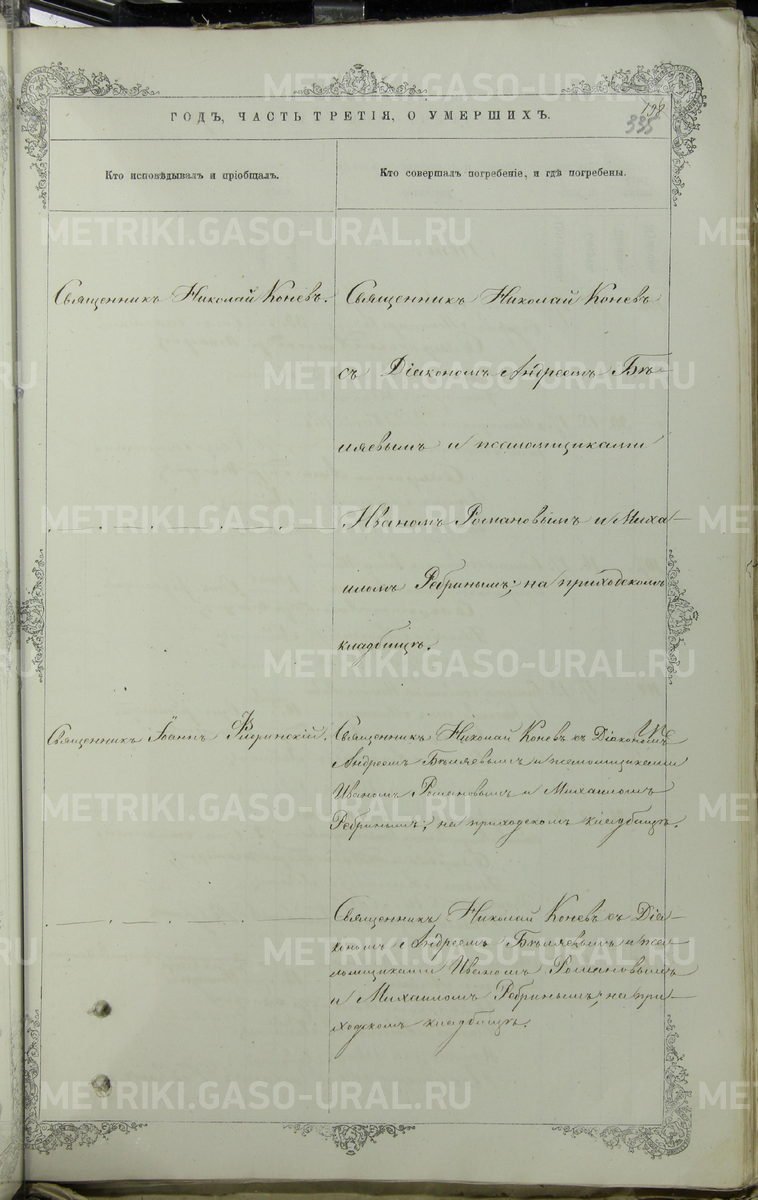 METRIKI.GASO-URAL.RU
ГОДЪ, ЧАСТЬ ТРЕТІЯ, О УМЕРШИХЪ.
335
Кто исповѣдывалъ и пріобщалъ.
Кто совершалъ погребеніе, и гдѣ погребены.
Священникъ Николай Коневъ.
Священникъ Николай Коневъ
съ Діакономъ Андреемъ Бѣ-
ляевымъ и псаломщиками
Иваномъ Романовымъ и Миха-
иломъ Ребринымъ; на приходскомъ
кладбищѣ.
Священникъ Іоаннъ Флоринскій.
Священникъ Николай Коневъ съ Діакономъ
Андреемъ Бѣляевымъ и псаломщиками
Иваномъ Романовымъ и Михаиломъ
Ребринымъ; на приходскомъ кладбищѣ.
Священникъ Николай Коневъ съ Діа-
кономъ Андреемъ Бѣляевымъ и пса-
ломщиками Иваномъ Романовымъ
и Михаиломъ Ребринымъ; на при-
ходскомъ кладбищѣ.